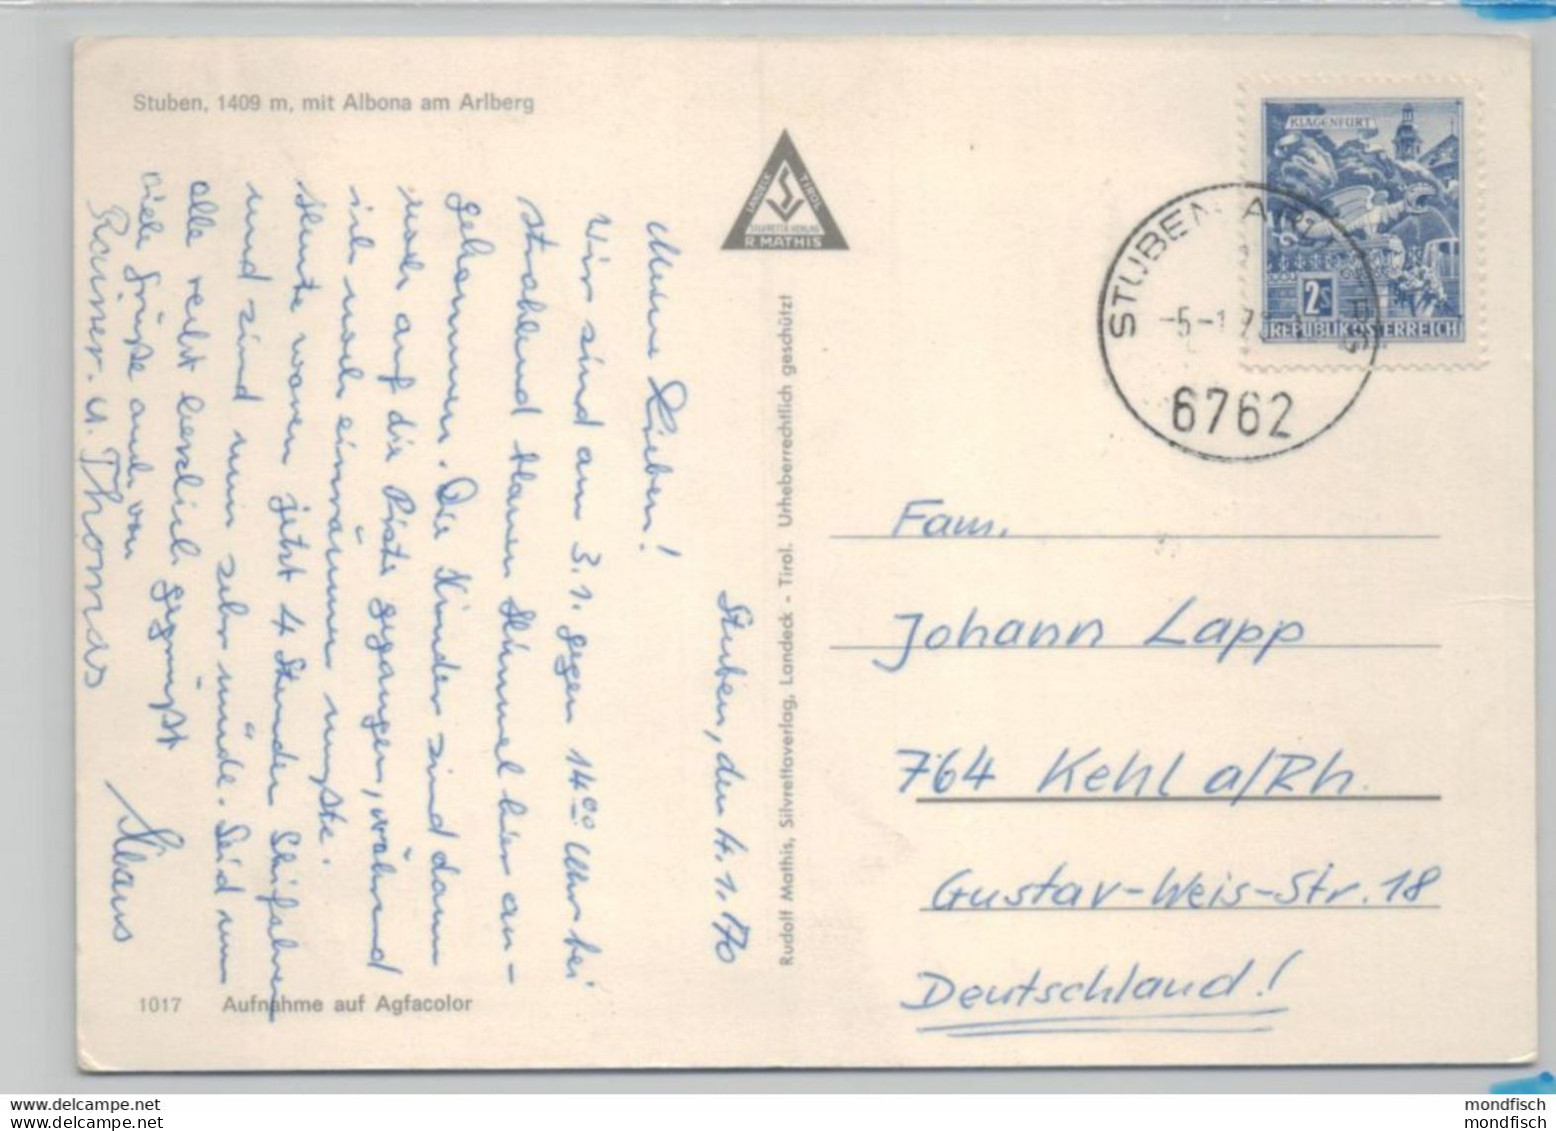 Stuben, 1409 m, mit Albona am Arlberg
LANDECK TIROL
SILVRETTA-VERLAG
R. MATHIS
KLAGENFURT
2 S
REPUBLIK ÖSTERREICH
STUBEN A. ARLBERG
-5-1.70
6762
Stuben, den 4.1.70
Meine Lieben!
Wir sind am 3.1. gegen 14⁰⁰ Uhr bei
strahlend blauem Himmel hier an-
gekommen. Die Kinder sind dann
noch auf die Piste gegangen, während
ich noch einräumen mußte.
Heute waren jetzt 4 Stunden Skifahren
und sind nun sehr müde. Seid nun
alle recht herzlich gegrüßt
Klaus
Viele Grüße auch von
Rainer u. Thomas
Rudolf Mathis, Silvrettaverlag, Landeck - Tirol. Urheberrechtlich geschützt
Fam.
Johann Lapp
764 Kehl a/Rh.
Gustav-Weis-Str. 18
Deutschland!
1017 Aufnahme auf Agfacolor
delcampe.net
mondfisch
delcampe.net
mondfisch